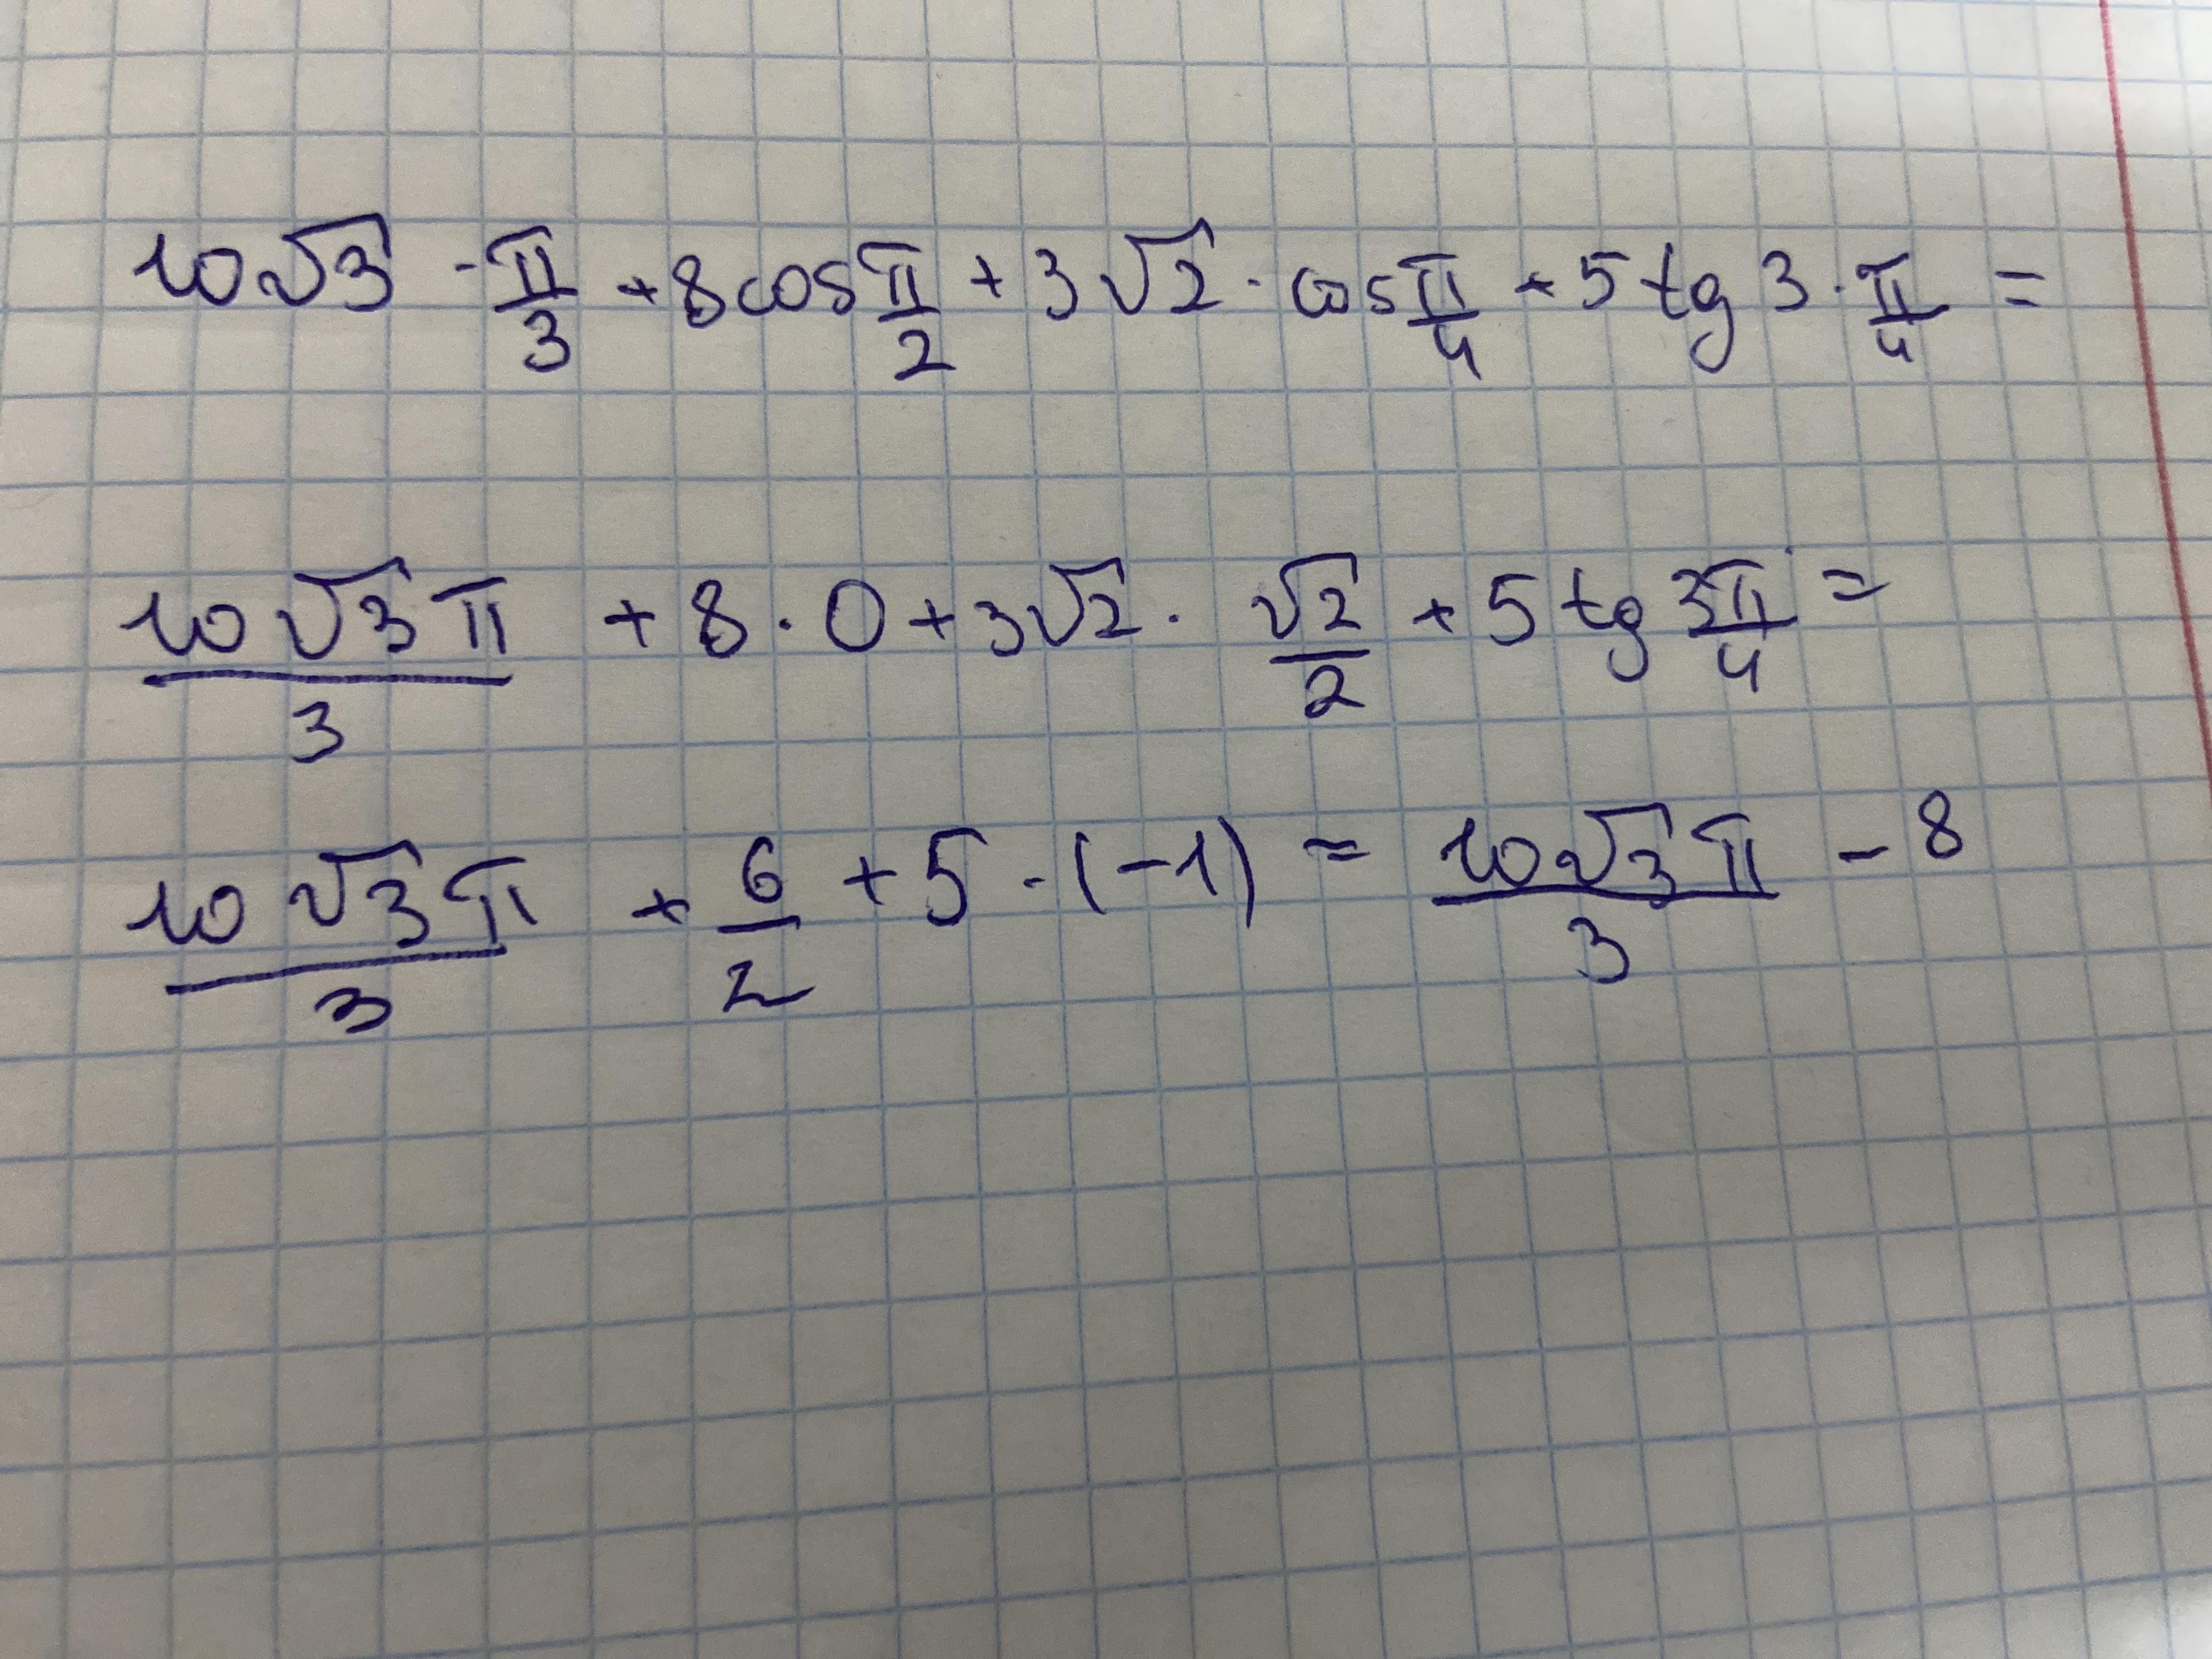 10√3 · π/3 + 8cos π/2 + 3√2 · cos π/4 + 5 tg 3 · π/4 =
10√3π/3 + 8 · 0 + 3√2 · √2/2 + 5 tg 3π/4 =
10√3π/3 + 6/2 + 5 · (-1) = 10√3π/3 - 8